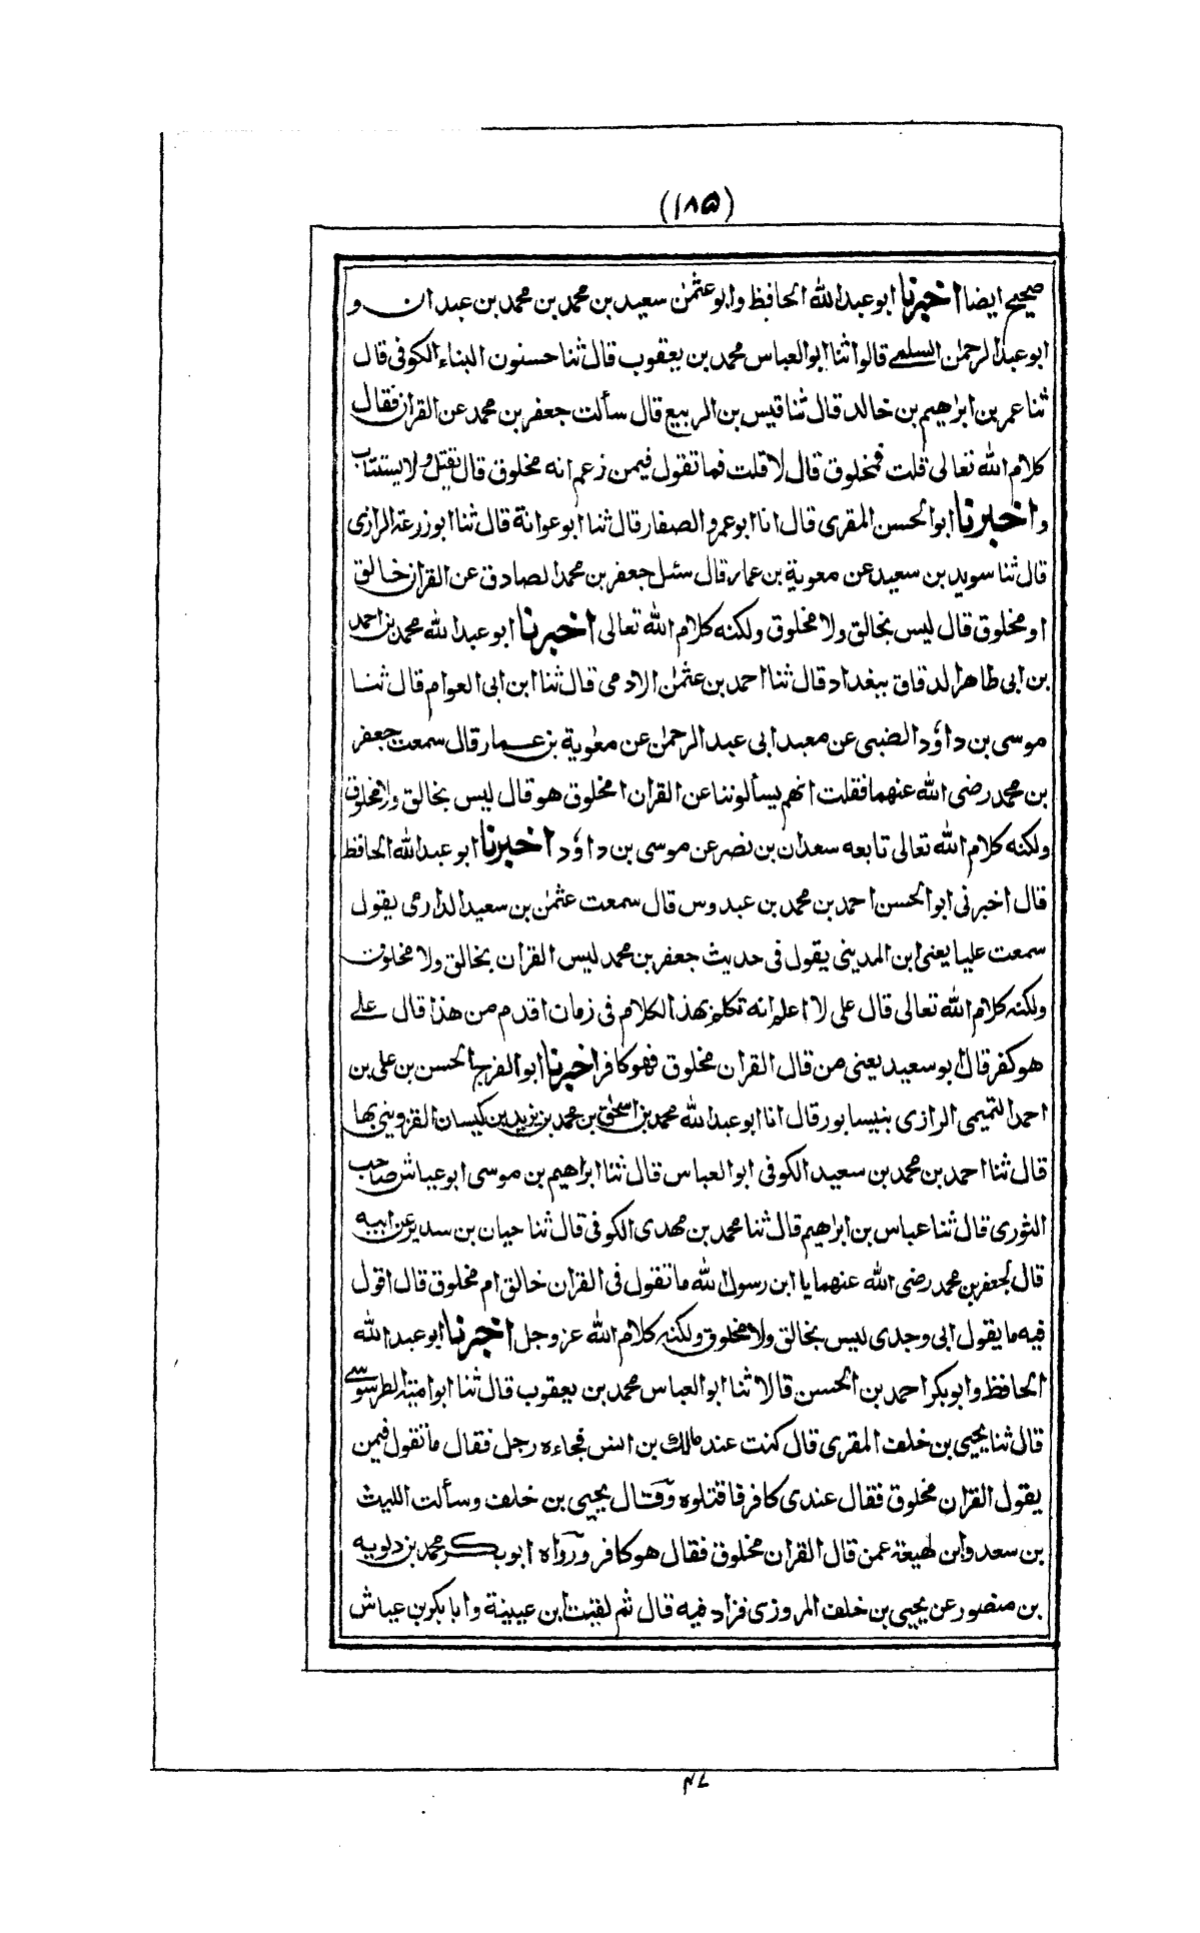 (١٨٥)
صحيح ايضا اخبرنا ابو عبد الله الحافظ وابو عثمٰن سعيد بن محمد بن محمد بن عبدان و
ابو عبد الرحمٰن السلمے قالوا ثنا ابو العباس محمد بن يعقوب قال ثنا حسنون البناء الكوفى قال
ثنا عمر بن ابرٰهيم بن خالد قال ثنا قيس بن الربيع قال سألت جعفر بن محمد عن القران فقال
كلام الله تعالى قلت فمخلوق قال لا قلت فما تقول فيمن زعم انه مخلوق قال يقتل ولا يستتاب
واخبرنا ابو الحسن المقرى قال انا ابو عمرو الصفار قال ثنا ابو عوانة قال ثنا ابو زرعة الرازى
قال ثنا سويد بن سعيد عن معوية بن عمار قال سئل جعفر بن محمد الصادق عن القران خالق
او مخلوق قال ليس بخالق ولا مخلوق ولكنه كلام الله تعالى اخبرنا ابو عبد الله محمد بن احمد
بن ابى طاهر الدقاق ببغداد قال ثنا احمد بن عثمٰن الادمى قال ثنا ابن ابى العوام قال ثنا
موسى بن داؤد الضبى عن معبد ابى عبد الرحمٰن عن معٰوية بن عمار قال سمعت جعفر
بن محمد رضى الله عنهما فقلت انهم يسألوننا عن القران امخلوق هو قال ليس بخالق ولا مخلوق
ولكنه كلام الله تعالى تابعه سعدان بن نصر عن موسى بن داؤد اخبرنا ابو عبد الله الحافظ
قال اخبرنى ابو الحسن احمد بن محمد بن عبدوس قال سمعت عثمٰن بن سعيد الدارمى يقول
سمعت عليا يعنى ابن المدينى يقول فى حديث جعفر بن محمد ليس القران بخالق ولا مخلوق
ولكنه كلام الله تعالى قال على لا اعلم انه تكلم بهذا الكلام فى زمان اقدم من هذا قال علے
هو كفر قال ابو سعيد يعنى من قال القران مخلوق فهو كافر اخبرنا ابو الفرج الحسن بن على بن
احمد التميمى الرازى بنيسابور قال انا ابو عبد الله محمد بن اسحٰق بن محمد بن يزيد بن كيسان القزوينى بها
قال ثنا احمد بن محمد بن سعيد الكوفى ابو العباس قال ثنا ابرٰهيم بن موسى ابو عياش صاحب
الثورى قال ثنا عباس بن ابرٰهيم قال ثنا محمد بن مهدى الكوفى قال ثنا حيان بن سدير عن ابيه
قال لجعفر بن محمد رضى الله عنهما يا ابن رسول الله ما تقول فى القران خالق ام مخلوق قال اقول
فيه ما يقول ابى وجدى ليس بخالق ولا مخلوق ولكنه كلام الله عز وجل اخبرنا ابو عبد الله
الحافظ وابو بكر احمد بن الحسن قالا ثنا ابو العباس محمد بن يعقوب قال ثنا ابو امية الطرسوسے
قال ثنا يحيى بن خلف المقرى قال كنت عند مالك بن انس فجاءه رجل فقال ما تقول فيمن
يقول القران مخلوق فقال عندى كافر فاقتلوه وقال يحيى بن خلف وسألت الليث
بن سعد وابن لهيعة عمن قال القران مخلوق فقال هو كافر ورواه ابو بكر محمد بن دلويه
بن منصور عن يحيى بن خلف المروزى فزاد فيه قال ثم لقيت ابن عيينة وابا بكر بن عياش